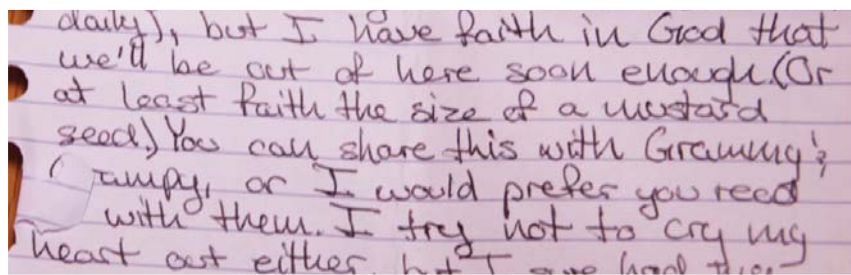 daily), but I have faith in God that
we'll be out of here soon enough. (Or
at least faith the size of a mustard
seed.) You can share this with Grammy &
ampy, or I would prefer you read
with them. I try not to cry my
heart out either, but I